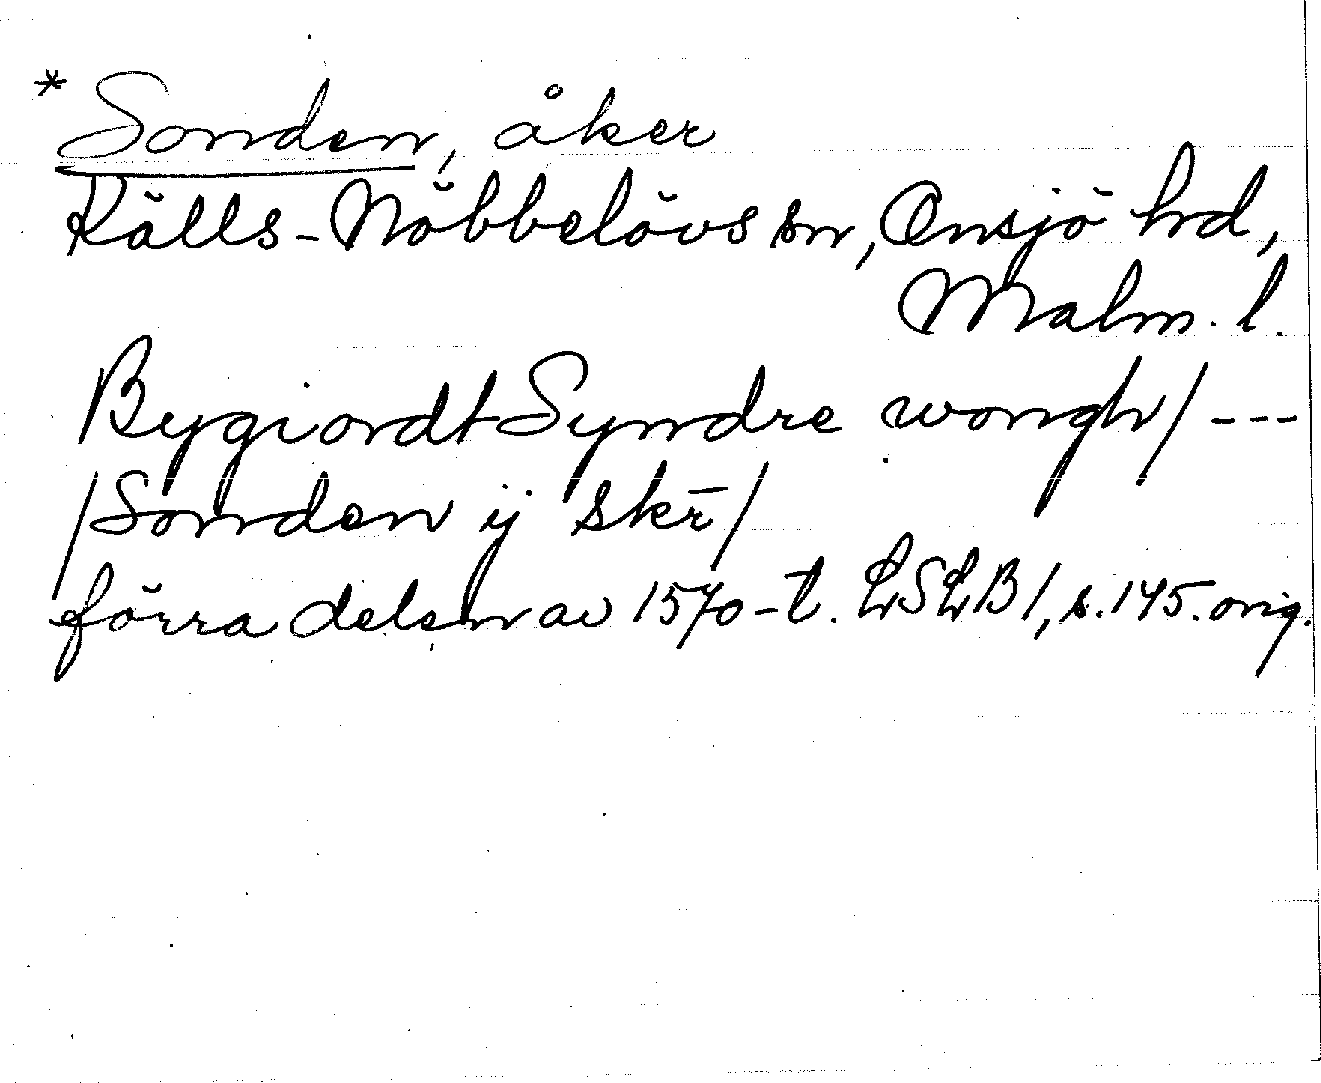 * Sonden, åker
Källs-Nöbbelövs sn, Onsjö hrd,
Malm. l.
Bygiordt Syndre wongh / ---
/ Sonden ij skr̄ /
förra delen av 1570-t. LSLB 1, s. 145. orig.